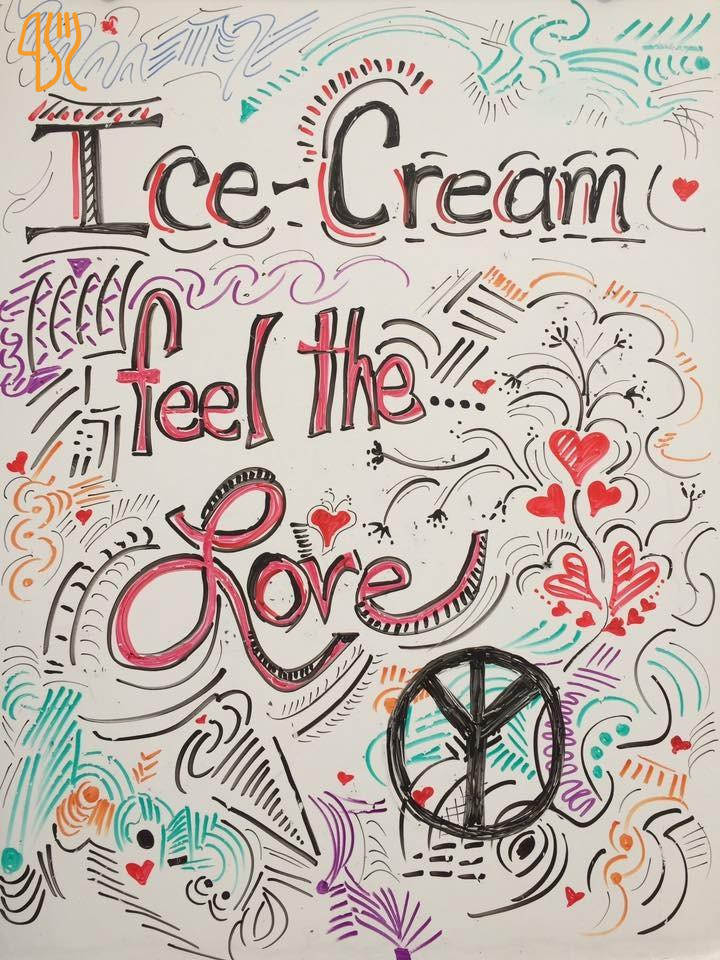 Ice-Cream
feel the....
Love